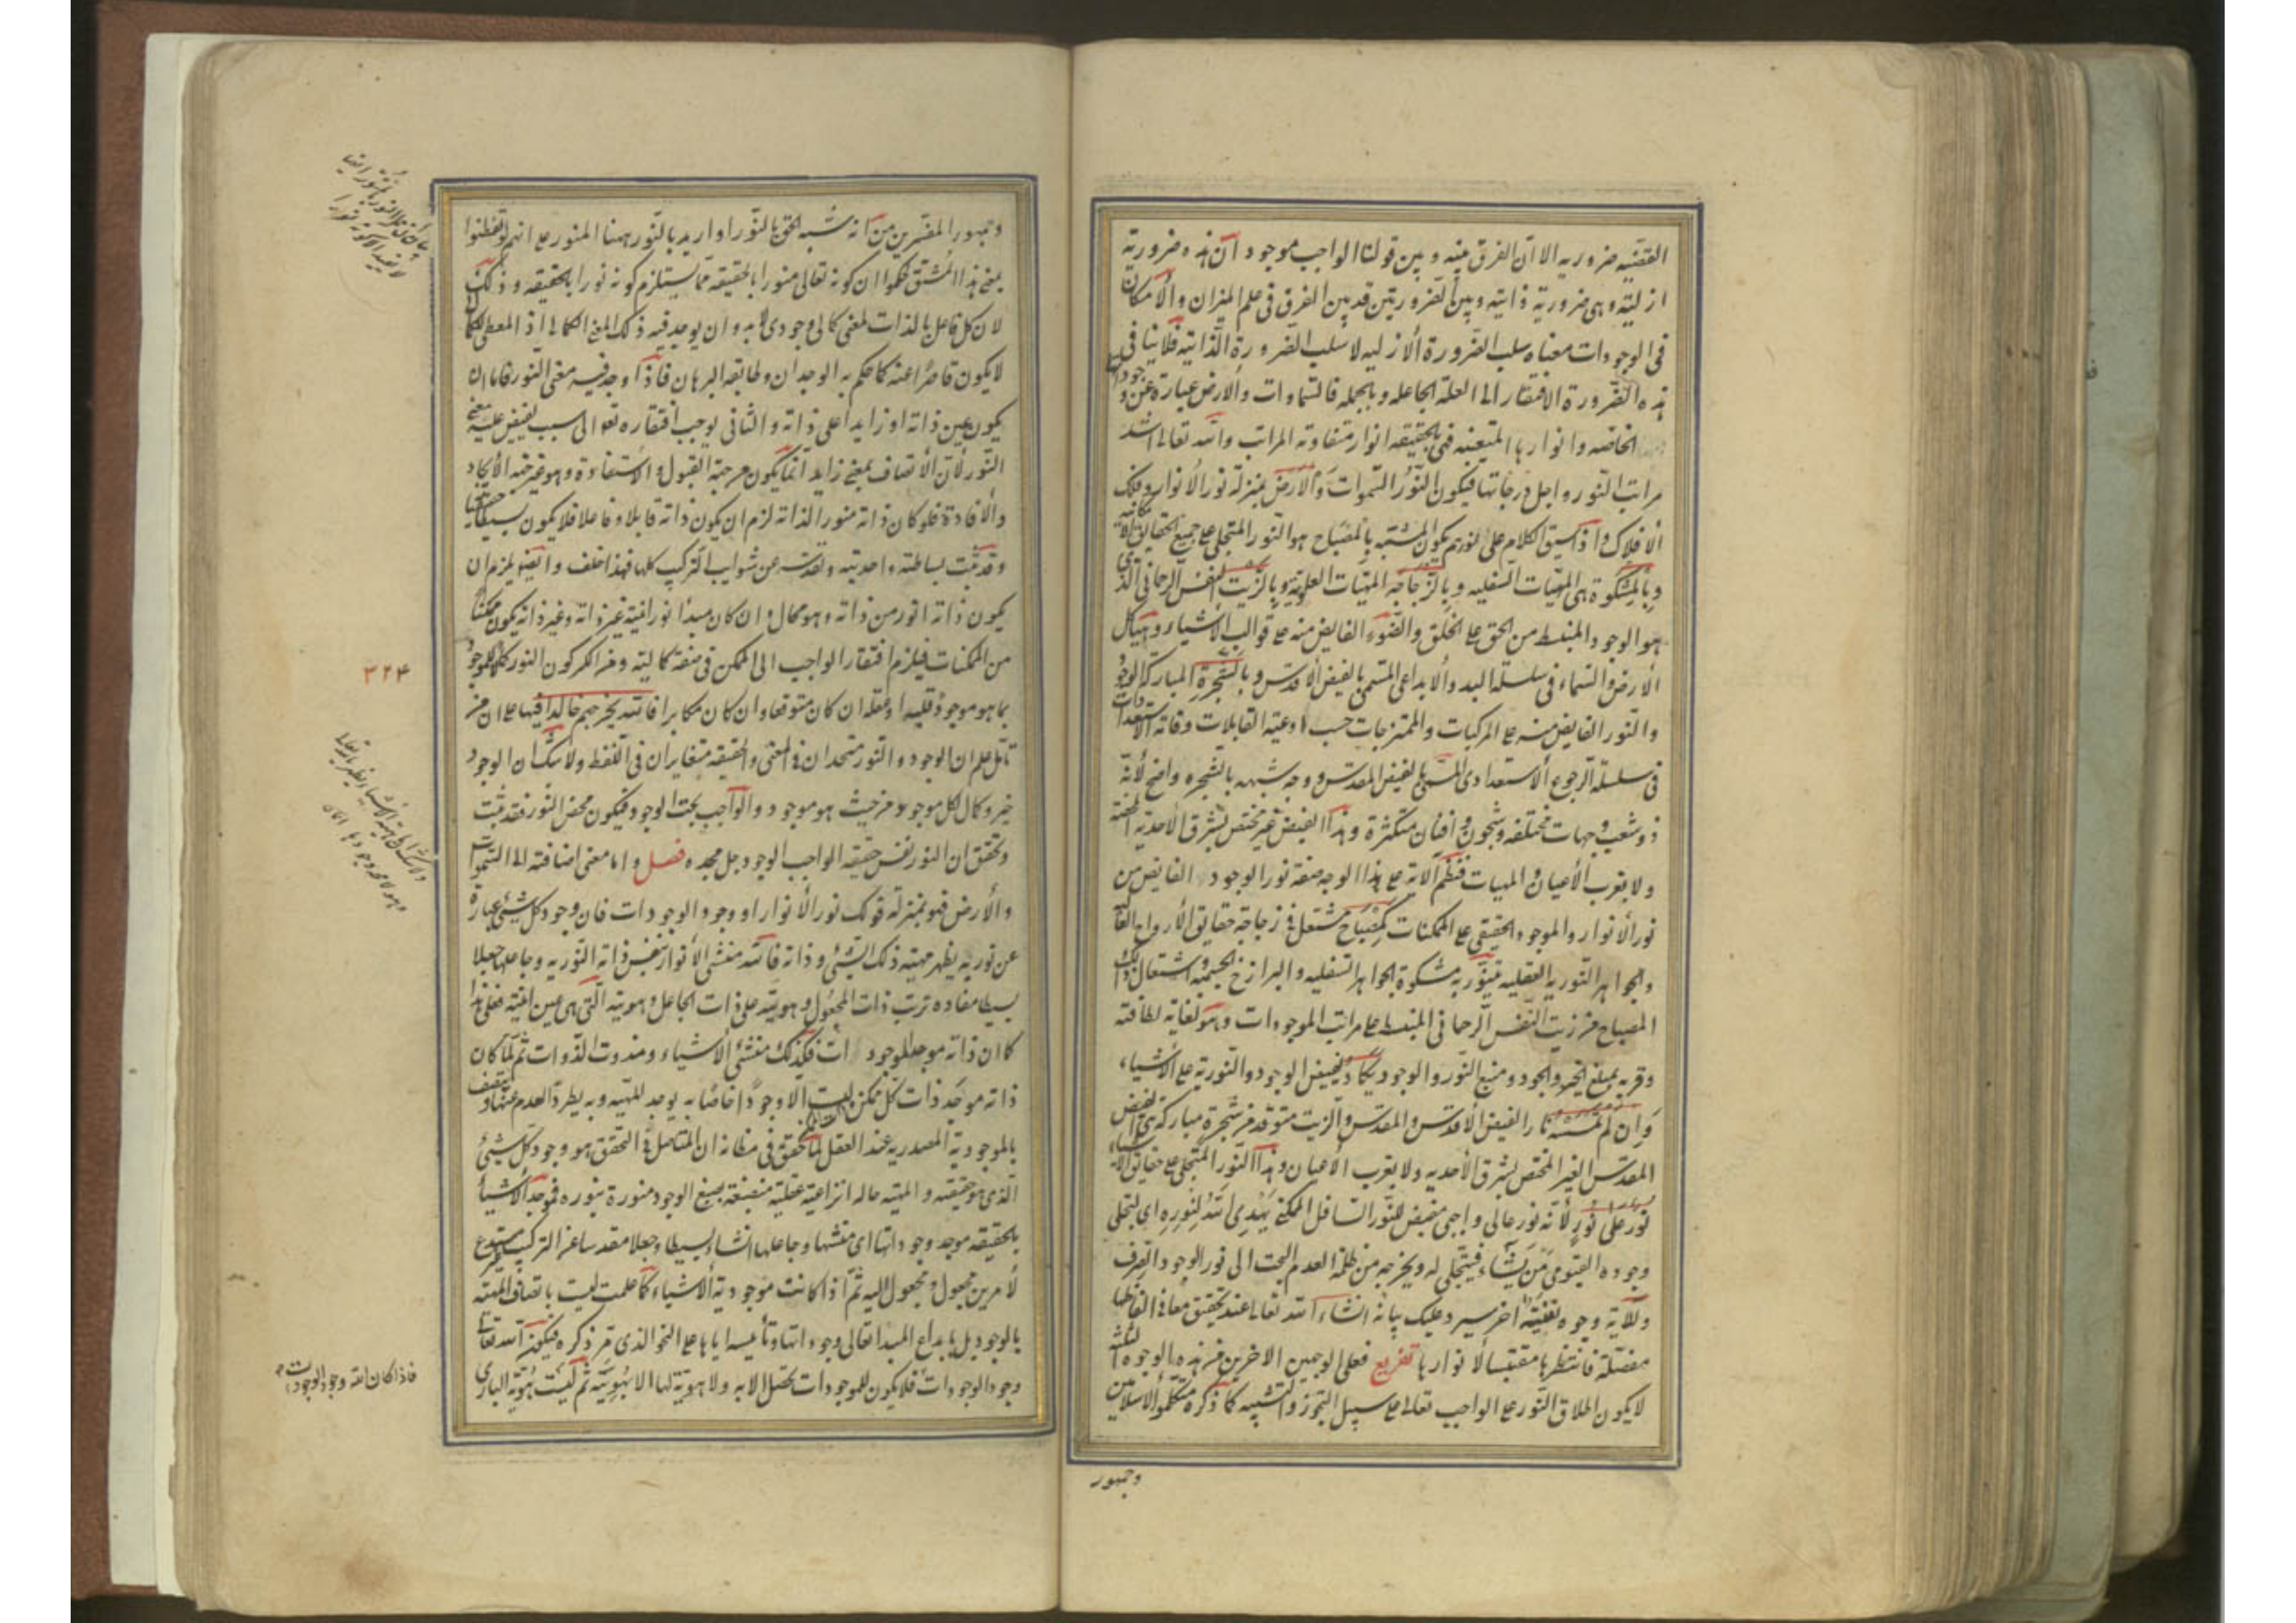 القضيه ضروريه الا ان الفرق بينه و بين قولنا الواجب موجود ان هذه ضرورته
ازليته و هى ضرورية ذاتيه و بين الضروريتين قد بين الفرق فى علم الميزان و الامكان
فى الوجودات معناه سلب الضرورة الازليه لا سلب الضرورة الذاتيه فلا ينافى
هذه الضرورة الافتقار الى العلة الجاعله و بالجمله فالسماوات و الارض عبارة عن وجوداتها
الخاصه و انوارها المتعينه فهى بالحقيقه انوار متفاوته المراتب و الله تعالى اشد
مراتب النور و اجل درجاتها فيكون النُّورُ السَّمواتِ وَالاَرضِ بمنزلة نور الانوار و فلك
الافلاك و اذ سيق الكلام على نورهم يكون المشبه بالمصباح هو النور المتجلى على جميع الحقايق الامكانيه
و بالمشكوة هى المهيات السفليه و بالزجاجه المهيات العلويه و بالزيت النفس الرحمانى الذى
هو الوجود المنبسط من الحق على الخلق و الضوء الفايض منه على قوالب الاشياء و هياكل
الارض و السماء فى سلسلة البدو الابداعى المسمى بالفيض الاقدس و بالشجرة المباركة الوجود
و النور الفايض منه على المركبات و الممتزجات حسب اوعية القابلات و قاته الاستعدادات
فى سلسلة الرجوع الاستعدادى المسمى بالفيض المقدس و وجه شبهه بالشجره واضح لانه
ذو شعب و جهات مختلفه و شجون و افنان متكثرة و هذا الفيض غير مختص بشرق الاحديه المحضة
و لا بغرب الاعيان و المهيات فنظم الاية على هذا الوجه صفة نور الوجود الفايض من
نور الانوار و الموجود الحقيقى على الممكنات كمصباح مشتعل فى زجاجة حقايق الارواح العا
و الجواهر النوريه العقليه يتنور به مشكوة الجواهر السفليه و البرازخ الجسميه و اشتعال ذلك
المصباح من زيت النفس الرحمانى المنبسط على مراتب الموجودات و هو لغاية لطافته
و قربه بمنبع الخير و الجود و منبع النور و الوجود يكاد يفيض الوجود و النورية على الاشياء
وَان لَم تَمسَسهُ نار الفيض الاقدس و المقدس و الزيت متوقد من شجرة مباركة هى الفيض
المقدس الغير المختص بشرق الاحديه و لا بغرب الاعيان و هذا النور المتجلى على حقايق الاشياء
نُورٌ عَلى نُورٍ لانه نور عالى واجبى مفيض للنور السافل الممكنى يَهدِى اللهُ لِنُورِهِ اى لتجلى
وجوده القيومى مَن يَشاء فيتجلى له و يخرجه من ظلمة العدم البحت الى نور الوجود الصرف
و للآية وجوه اخر سيرد عليك بيانه انشاء الله تعالى عند تحقيق معانى الفاظها
مفصلة فانتظرها مقتبسا لانوارها تفريع فعلى الوجهين الاخرين من هذه الوجوه الثلثه
لا يكون اطلاق النور على الواجب تعالى على سبيل التجوز و التشبيه كما ذكره متكلموا الاسلاميين
و جمهور
و جمهور المفسرين من انه شبه الحق بالنور او اريد بالنور ههنا المنور على انهم لو تفطنوا
بمعنى هذا المشتق لحكموا ان كونه تعالى منورا بالحقيقه مما يستلزم كونه نورا بالحقيقه و ذلك
لان كل فاعل بالذات لمعنى كمالى وجودى لابد و ان يوجد فيه ذلك المعنى الكمالى اذ المعطى للكمال
لا يكون قاصرًا عنه كما حكم به الوجدان و طابقه البرهان فاذا وجد فيه معنى النور فاما ان
يكون عين ذاته او زايدا على ذاته و الثانى يوجب افتقاره تعالى الى سبب يفيض عليه معنى
النور لان الاتصاف بمعنى زايد انما يكون من جهة القبول و الاستفادة و هو غير جهة الايجاد
و الافادة فلو كان ذاته منورا لذاته لزم ان يكون ذاته قابلا و فاعلا فلا يكون بسيطا حقيقيا
و قد ثبت بساطته و احديته و تقدسه عن شوايب التركيب كلها فهذا خلف و ايضا يلزم ان
يكون ذاته انور من ذاته و هو محال و ان كان مبدأ نورانيته غير ذاته و غير ذاته يكون ممكنًا
من الممكنات فيلزم افتقار الواجب الى الممكن فى صفة كماليه و من انكر كون النور كمالا للموجود
بما هو موجود فليسد او عقله ان كان متوقعا و ان كان مكابرا فالله يخرجهم خالدا فيها على ان من
تامل علم ان الوجود و النور متحدان فى المعنى و الحقيقه متغايران فى اللفظ و لا شك ان الوجود
خير و كمال لكل موجود من حيث هو موجود و الواجب بحت الوجود فيكون محض النور فقد ثبت
و تحقق ان النور نفس حقيقه الواجب الوجود جل مجده فصل و اما معنى اضافته الى السموات
و الارض فهو بمنزلة قولك نور الانوار او وجود الوجودات فان وجود كل شيئ عبارة
عن نوريه يظهر مهيته ذلك الشيئ و ذاته فالله منشئ الانوار بنفس ذاته النوريه و جاعلها جعلا
بسيطا مفاده ترتب ذات المجعول و هويته على ذات الجاعل و هويته التى هى عين انيته فعلى هذا
كما ان ذاته موجد للموجودات فكذلك منشئ الاشياء و مذوت الذوات ثم لما كان
ذاته موجد ذات كل ممكن ليست الا وجودًا خاصًا به يوجد المهيه و به يطرد العدم عنها و يتصف
بالموجودية المصدريه عند العقل لما تحقق فى مظانه ان المتاصل فى التحقق هو وجود كل شيئ
الذى هو حقيقته و المهيه حاله انتزاعية عقلية منصبغة بصبغ الوجود منورة بنوره فموجد الاشياء
بالحقيقه موجد وجوداتها اى منشئها و جاعلها انشاء بسيطا و جعلا مقدسا عن التركيب مستدع
لامرين مجعول و مجعول اليه ثم اذا كانت موجودية الاشياء كما علمت ليست باتصاف المهيه
بالوجود بل بابداع المبدا تعالى وجوداتها و تأييسه اياها على النحو الذى مر ذكره فيكون الله تعالى
وجود الوجودات فلا يكون للموجودات تحصل الا به و لا هوية لها الا بهويته ثم ليست هوية البارى
٣٢۴
فاذا كان الله وجود الوجودات